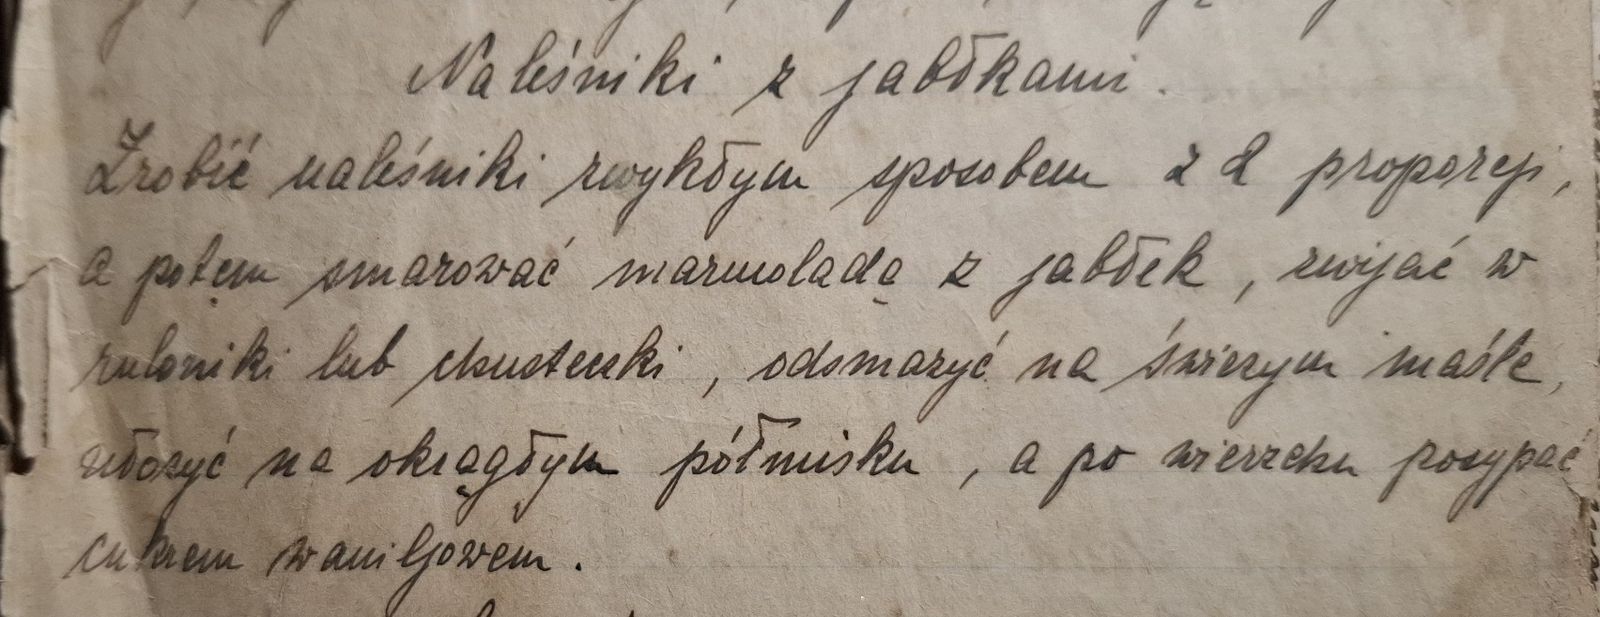 Naleśniki z jabłkami.
Zrobić naleśniki zwykłym sposobem z 2 proporcji,
a potem smarować marmoladą z jabłek, zwijać w
ruloniki lub chusteczki, odsmażyć na świeżym maśle,
ułożyć na okrągłym półmisku, a po wierzchu posypać
cukrem waniljowem.